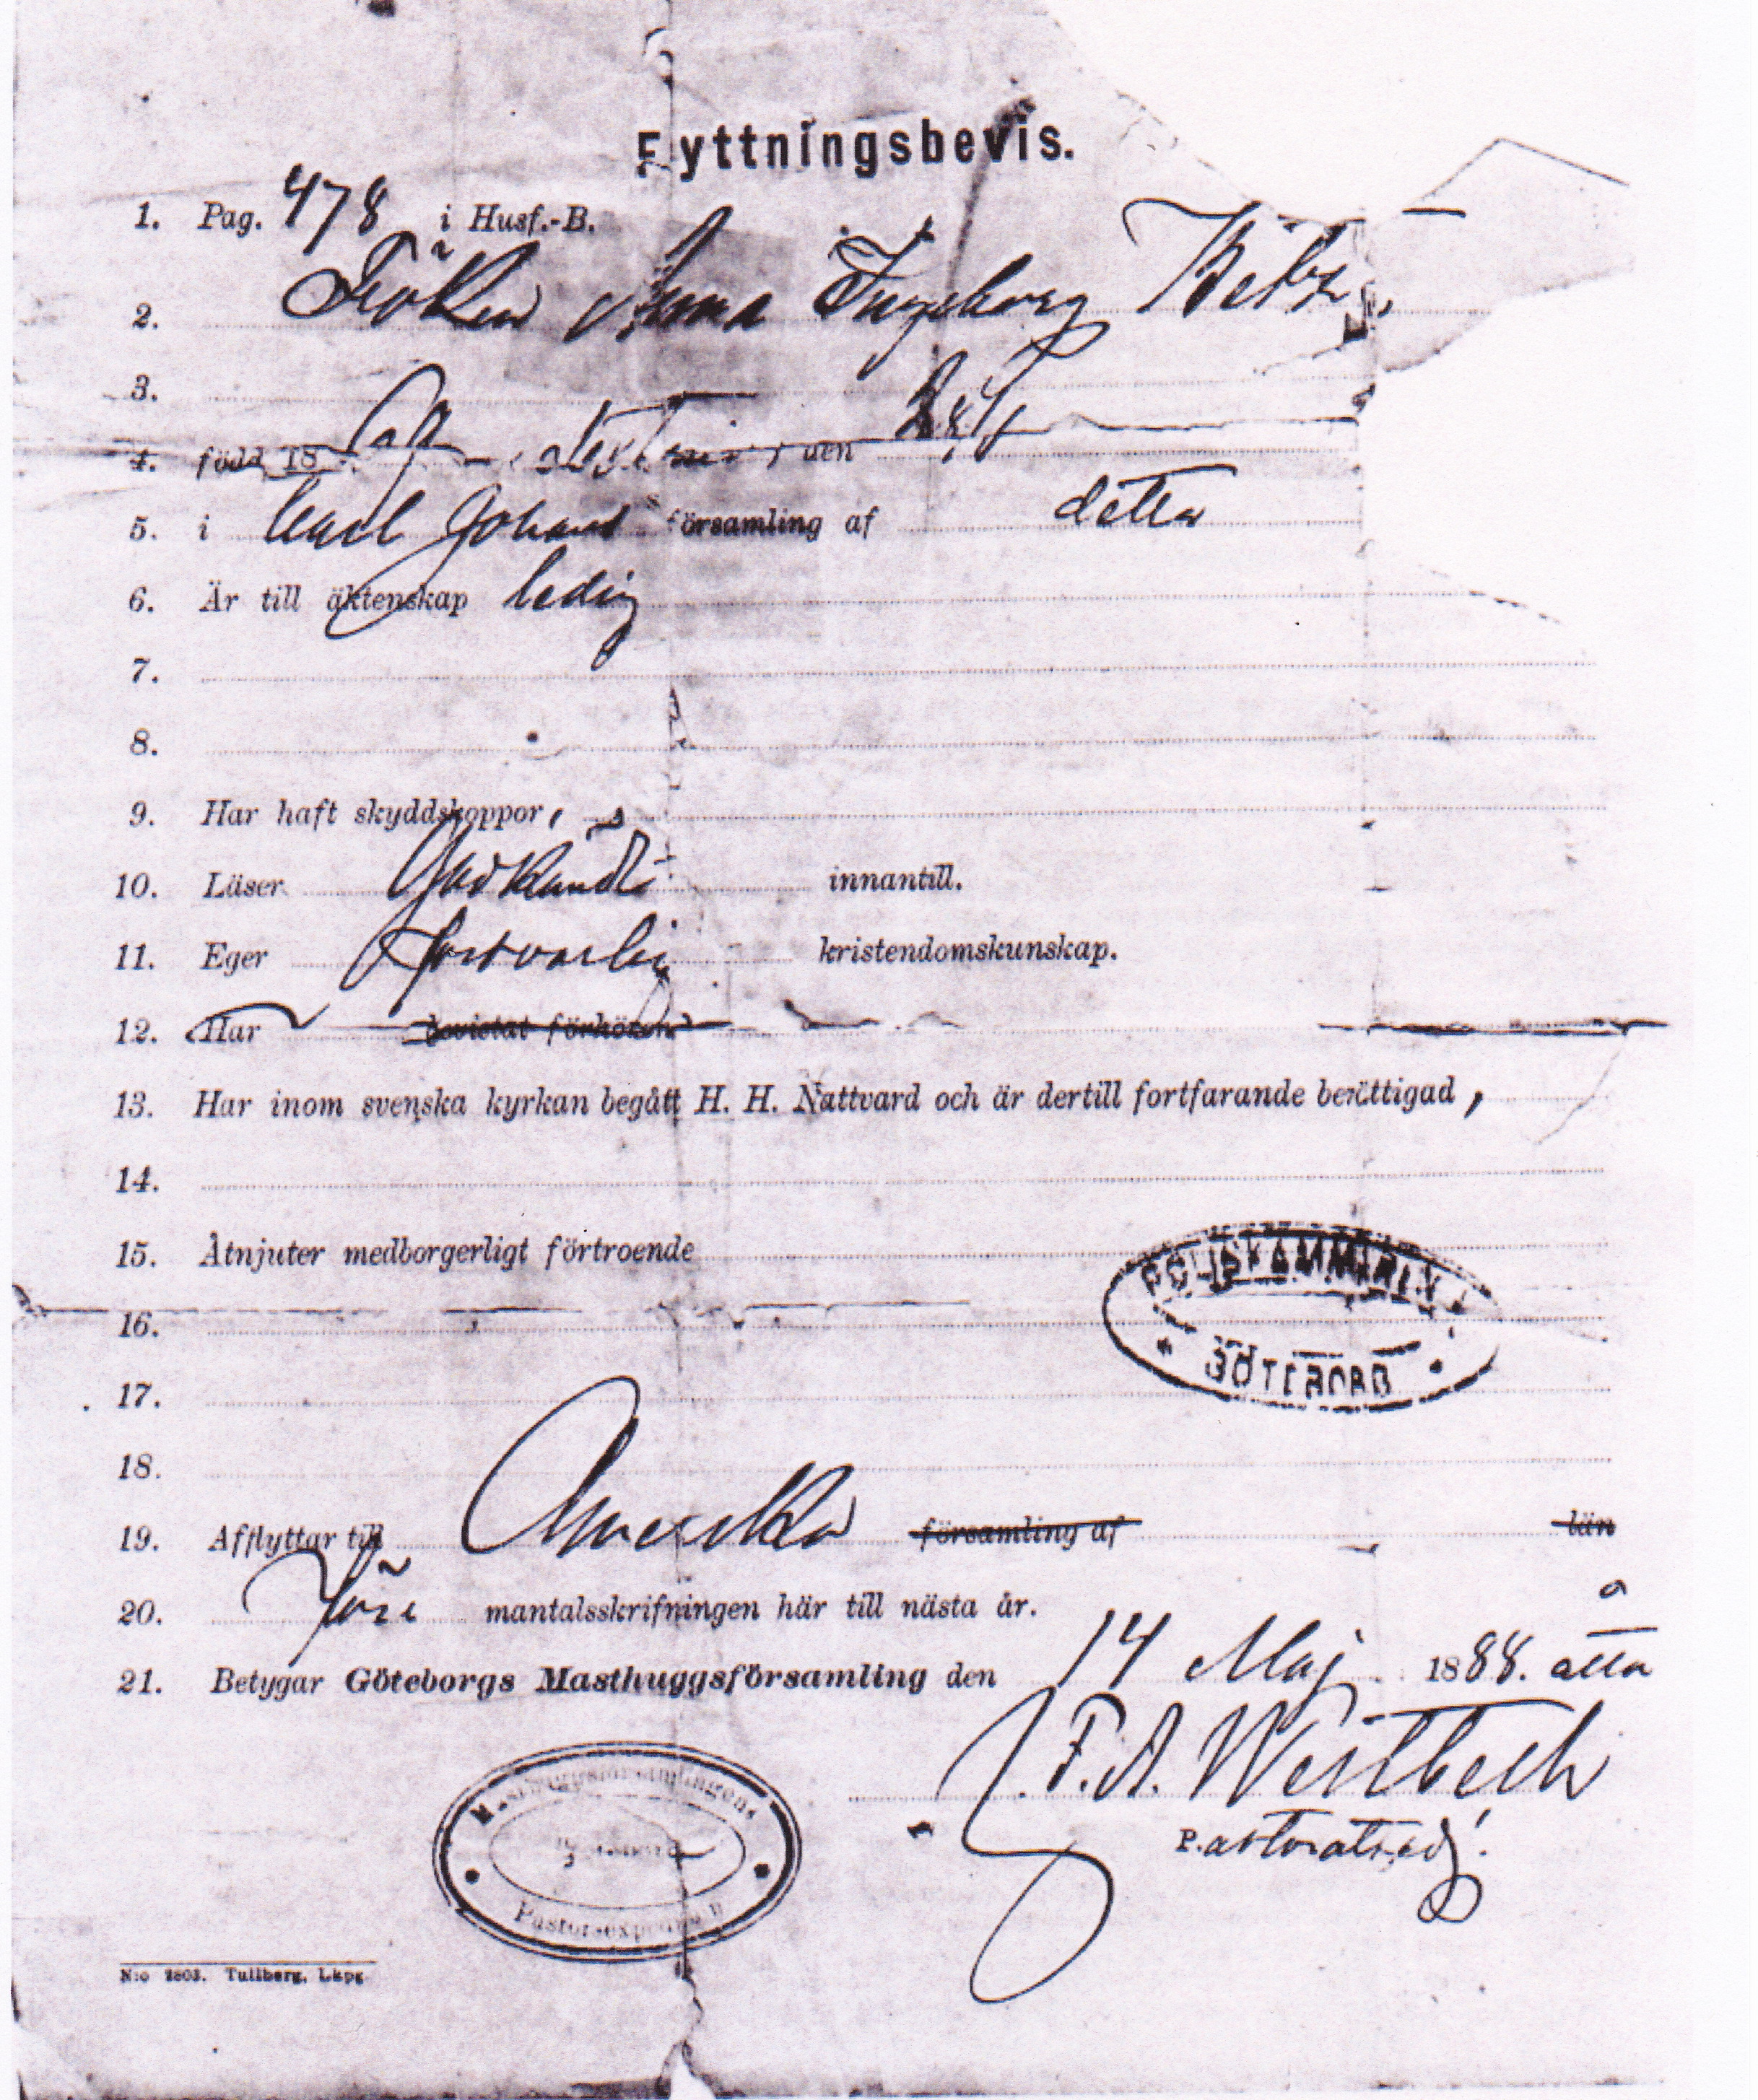 Flyttningsbevis.
1. Pag. 478 i Husf.-B.
2. Fröken Anna Ingeborg
3.
4. född 18 69 sextionio, den 28/4
5. i Carl Johans församling af detta
6. Är till äktenskap ledig
7.
8.
9. Har haft skyddskoppor,
10. Läser Godkändt innantill.
11. Eger försvarlig kristendomskunskap.
12. Har bevistat förhören
13. Har inom svenska kyrkan begått H. H. Nattvard och är dertill fortfarande berättigad,
14.
15. Åtnjuter medborgerligt förtroende
POLISKAMMAREN
16.
GÖTEBORG
17.
18.
19. Afflyttar till Amerika församling af län
20. före mantalsskrifningen här till nästa år.
21. Betygar Göteborgs Masthuggsförsamling den 14 Maj 1888. åtta
F. A. Westbeck
Pastorats adj.
Masthuggsförsamlingens
Göteborg
Pastorsexpedition
N:o 2803. Tullberg, Lkpg